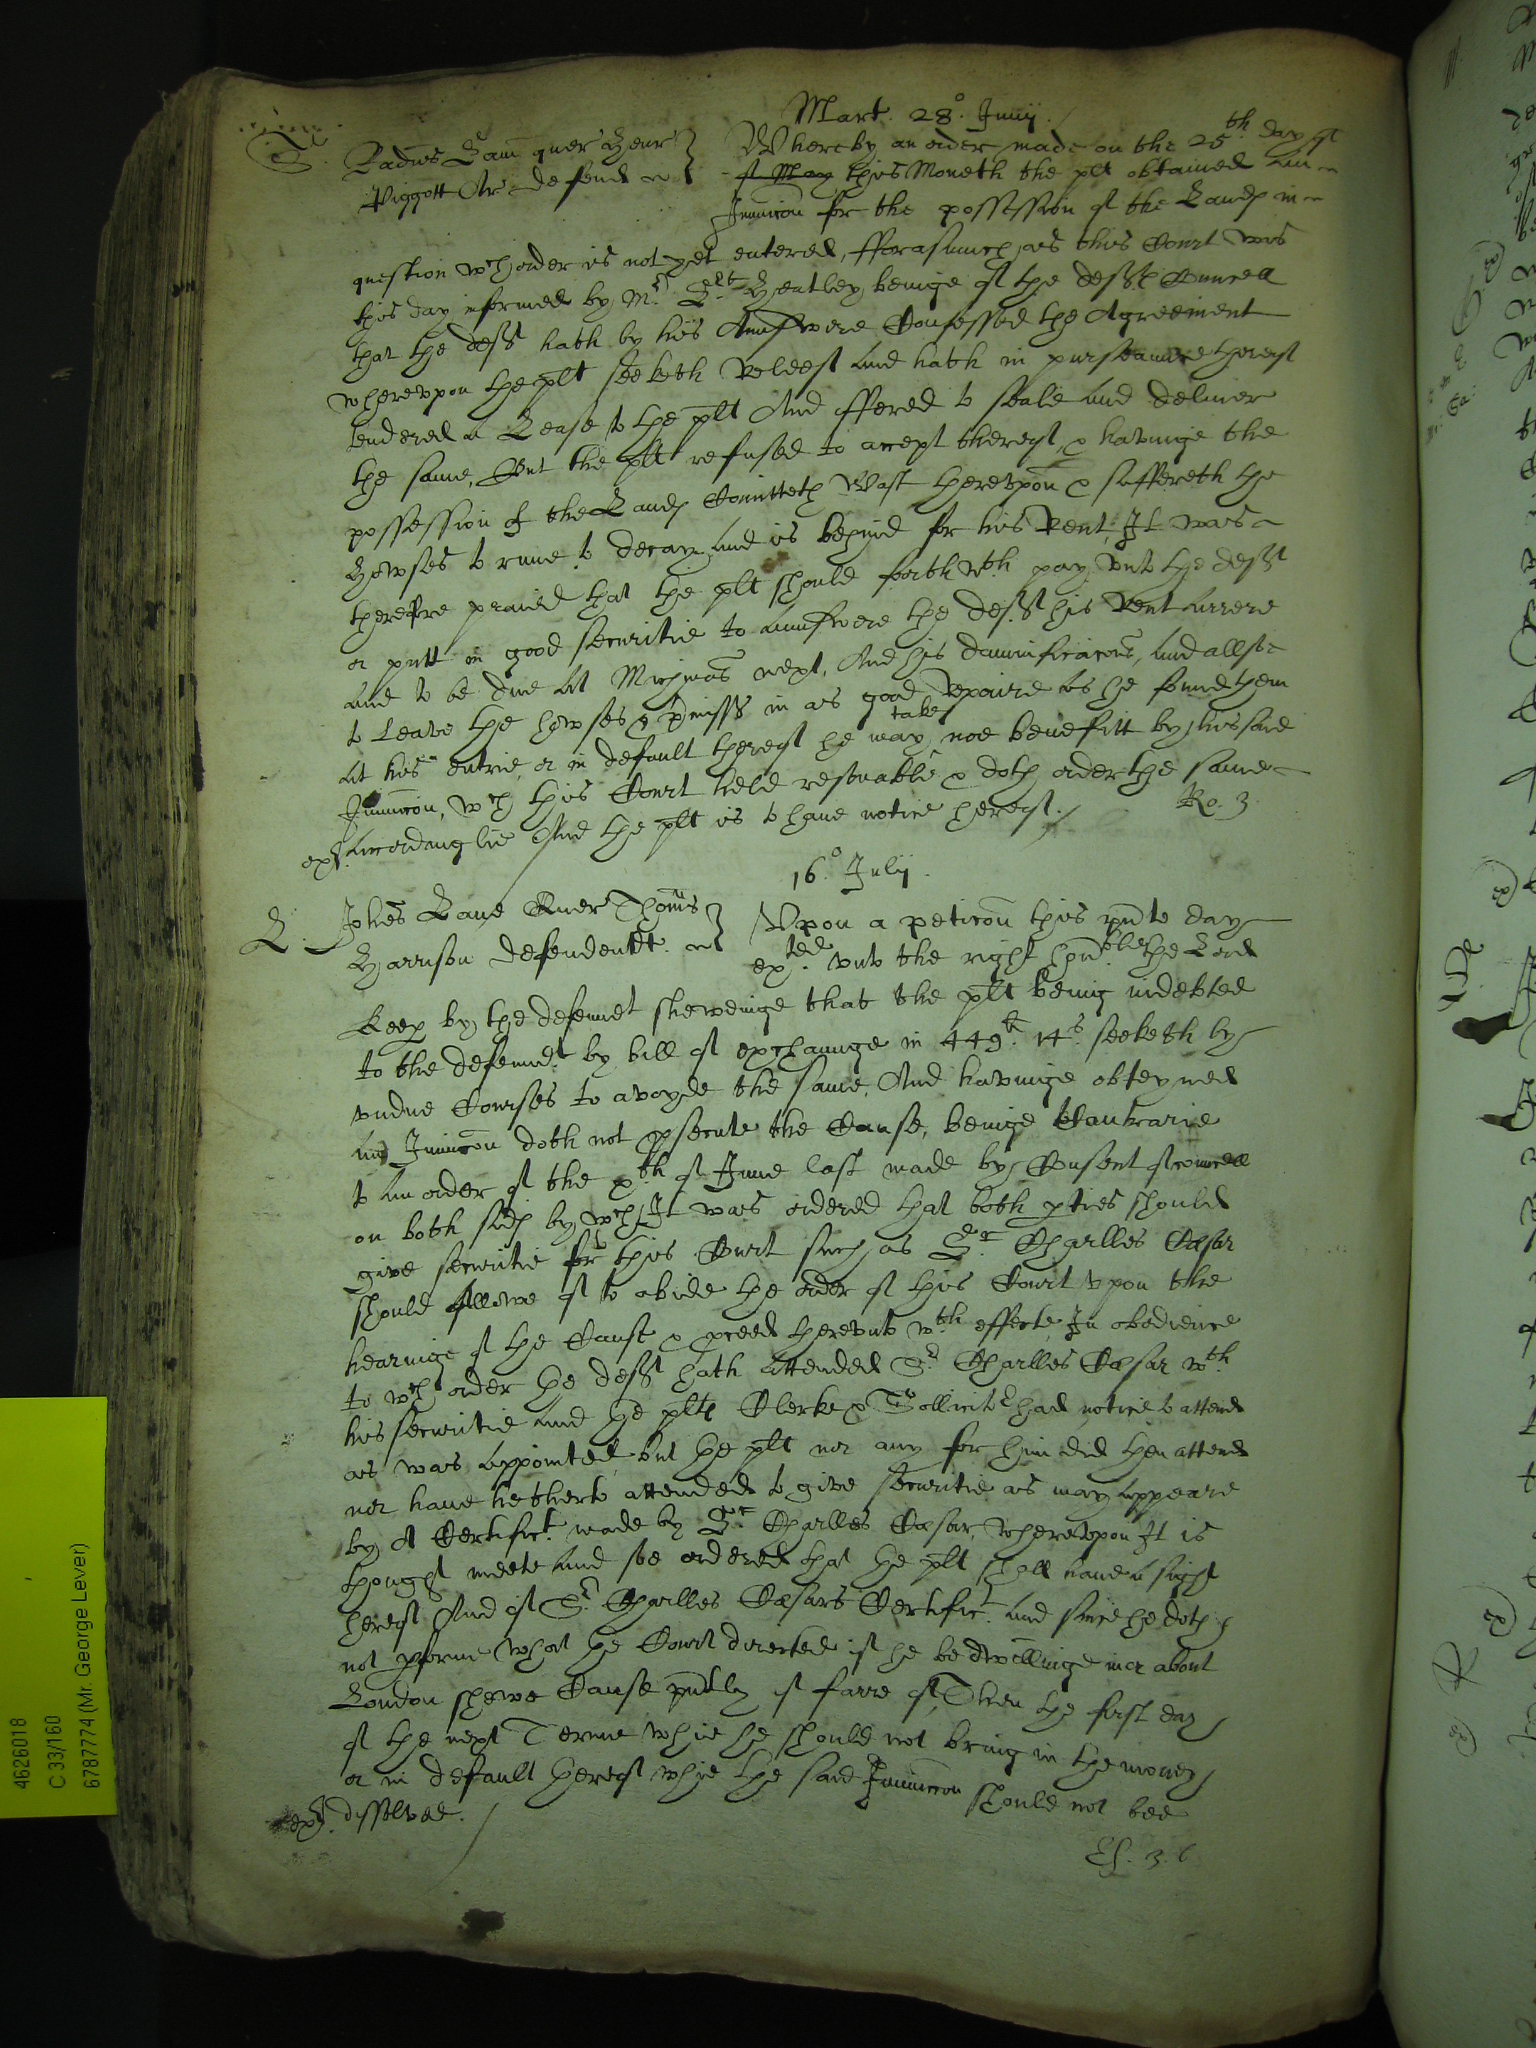 Mart. 28°. Junij.
S. Ladius Lam quer Henr Whereby an order made on the 25th day of
Piggott Ar defend et of May this Moneth the plt obtained an
Iniuncc̃on for the possession of the Land in
question wch order is not yet entered, fforasmuch as this Court was
this day informed by Mr. Heatley beinge of the deff Councell
that the deff hath by his Aunswere Confessed the Agreement
wherevpon the plt seeketh Releefe and hath in pursuance thereof
tendered a Lease to the plt And offered to seale and deliuer
the same, But the plt refused to accept thereof, & havinge the
possession of the Land Comitteth Wast therevpon & suffereth the
Howses to ruine to decay, and is behynd for his Rent, It was
therefore praied that the plt should forthwth pay vnto the deff
or putt in good securitie to aunswere the deff his Rent arrere
and to be due at Michmas next, And his damnificacons, and allsoe
to leave the howses & pmiss in as good Repaire as he found them
at his entrie, or in default thereof he may take noe benefitt by his said
Iniuncc̃on, wch this Court held resonable & doth order the same
ex accordinglie And the plt is to haue notice hereof. Ro. 3
16°. Julij.
L. Johes Lane Quer Thoms Vpon a peticon this pnte day
Harrison defendentt. et exted. vnto the right honble the Lord
Keep by the defendt shewinge that the plt being indebted
to the defendt by bill of exchaunge in 449li. 14s. seeketh by
vndue Courses to avoyde the same, And havinge obteyned
an Iniuncc̃on doth not psecute the Cause, beinge Contrarie
to an order of the xth of June last made by Consent of councell
on both sides by wch It was ordered that both pties should
give securitie for this Court such as Sr Charlles Cæsar
should allowe of to abide the order of this Court vpon the
hearinge of the Cause & pceed therevnto wth effecte, In obedience
to wch order the deff hath attended Sr Charlles Cæsar wth
his securitie and the plts Clerke & Sollicitr had notice to attend
as was appointed, but the plt nor any for him did then attend
nor haue hetherto attended to give securitie as may appeare
by A Certifict. made by Sr Charlles Cæsar, Wherevpon It is
thought meete and soe ordered that the plt shall haue a sight
hereof And of Sr. Charlles Cæsars Certifict. and since he doth
not pforme what the Court directed if he be dwellinge in or about
London shewe Cause pntly if farre of, Then the first day
of the next Terme whie he should not bring in the money
or in default hereof whie the said Iniuncc̃on should not bee
ex. dissolved.
4626018
C 33/160
6787774 (Mr. George Lever)